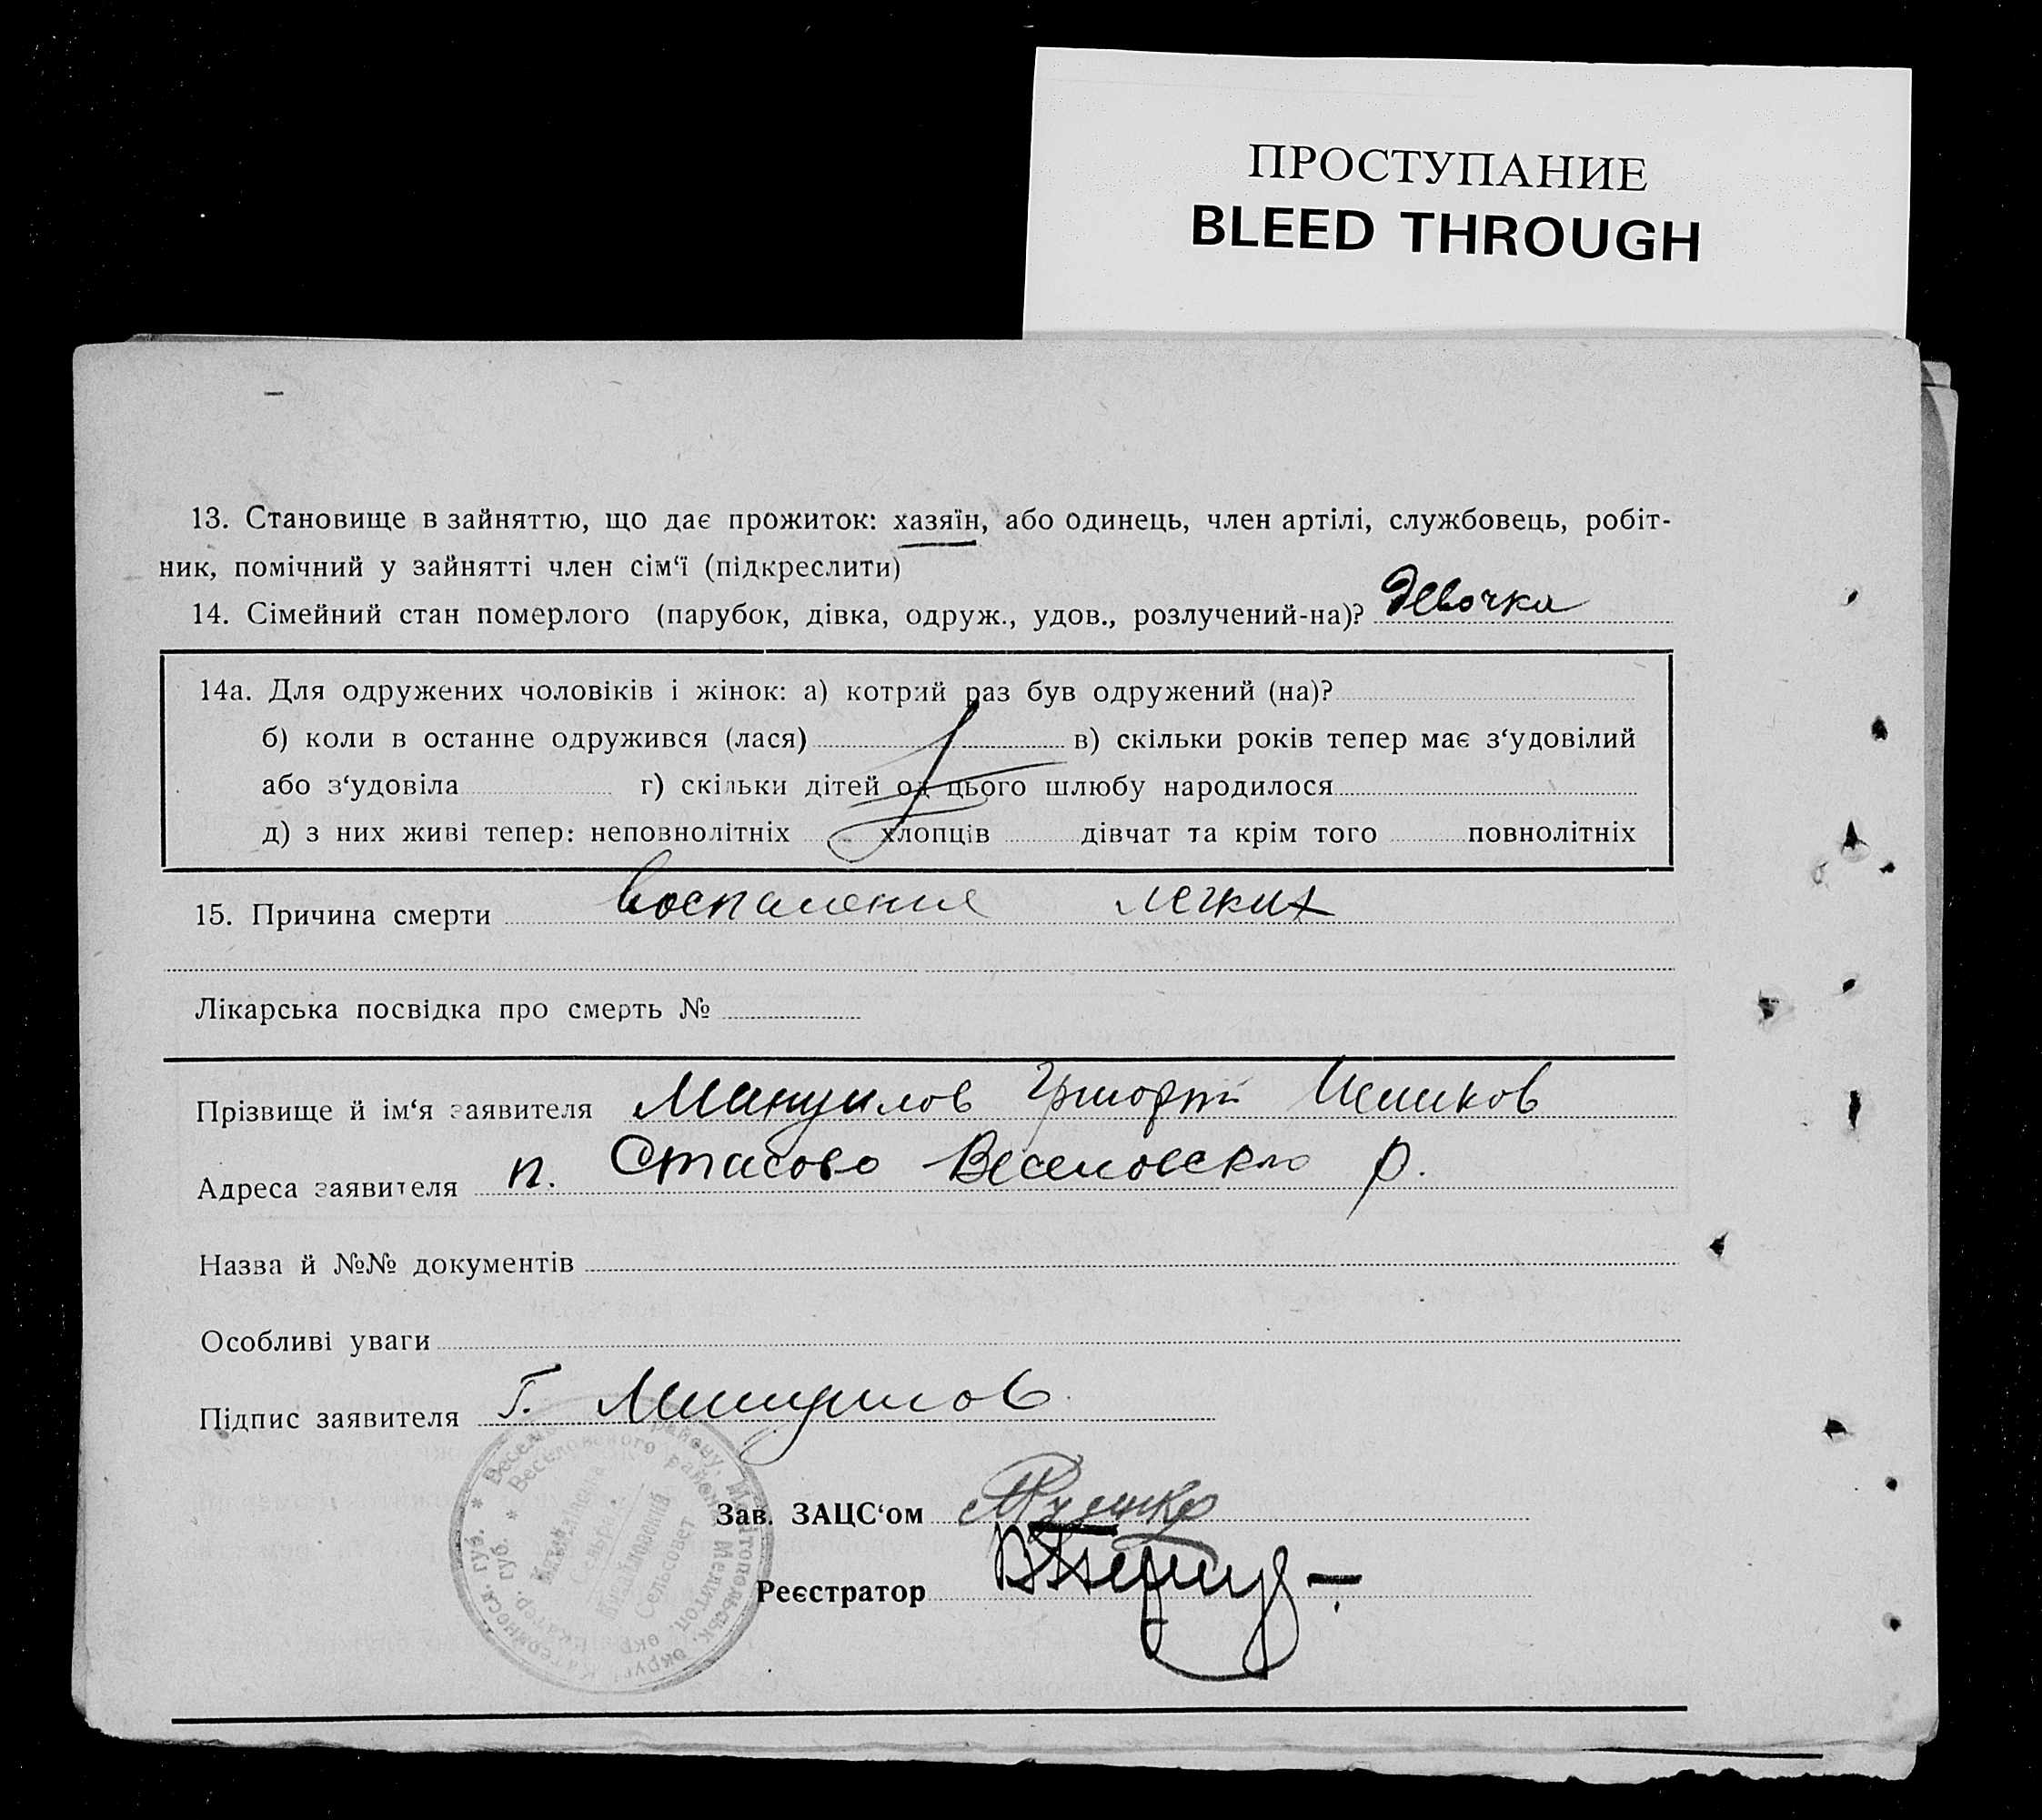 ПРОСТУПАНИЕ
BLEED THROUGH
13. Становище в зайняттю, що дає прожиток: хазяїн, або одинець, член артілі, службовець, робіт-
ник, помічний у зайнятті член сім‘ї (підкреслити)
14. Сімейний стан померлого (парубок, дівка, одруж., удов., розлучений-на)? девочка
14а. Для одружених чоловіків і жінок: а) котрий раз був одружений (на)?
б) коли в останнє одружився (лася) в) скільки років тепер має з‘удовілий
або з‘удовіла г) скільки дітей од цього шлюбу народилося
д) з них живі тепер: неповнолітніх хлопців дівчат та крім того повнолітніх
15. Причина смерти воспаление легких
Лікарська посвідка про смерть №
Прізвище й ім‘я заявителя Мануилов Григорий
Адреса заявителя п. Стасово Веселовского р.
Назва й №№ документів
Особливі уваги
Підпис заявителя Г. Мануилов
Зав. ЗАЦС‘ом
Реєстратор
Веселовского района Мелитоп. окр. Катер. губ.
Михайловский
Сельсовет